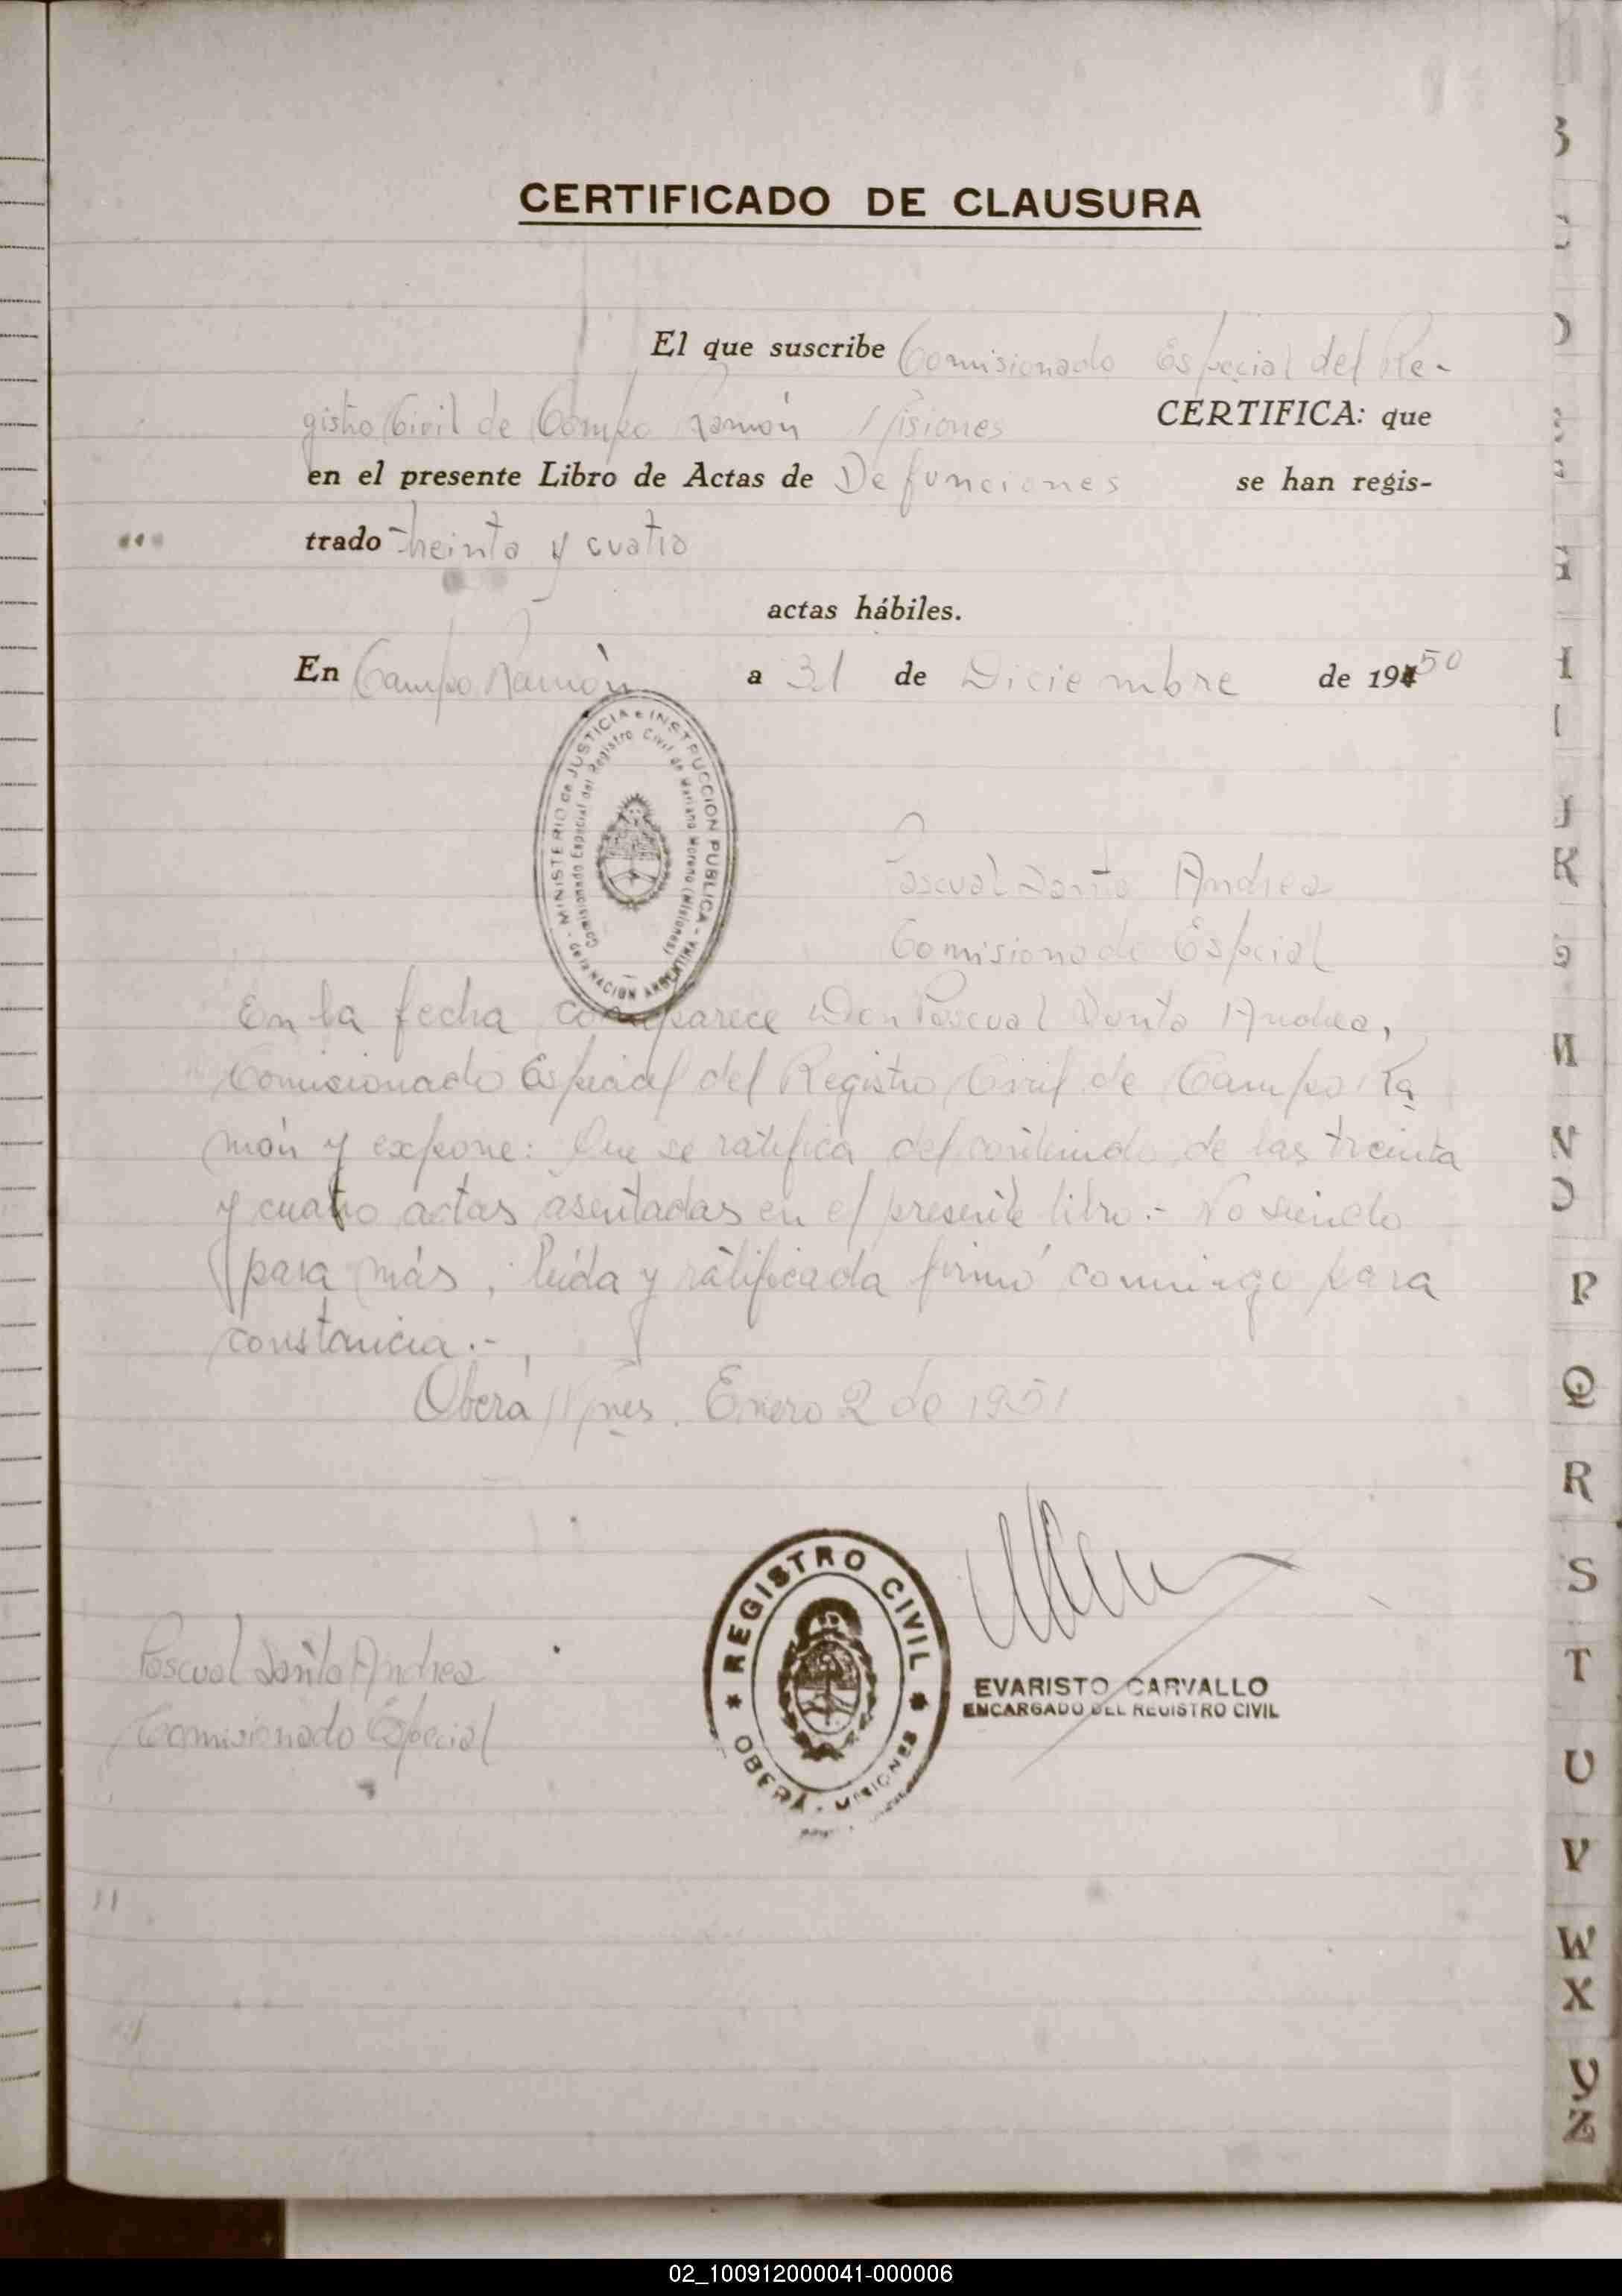 CERTIFICADO DE CLAUSURA
El que suscribe Comisionado Especial del Re-
gistro Civil de Campo Ramón Misiones CERTIFICA: que
en el presente Libro de Actas de Defunciones se han regis-
trado treinta y cuatro
actas hábiles.
En Campo Ramón a 31 de Diciembre de 1950
MINISTERIO de JUSTICIA e INSTRUCCION PUBLICA - de la NACION ARGENTINA -
Comisionado Especial del Registro Civil de Mariano Moreno (Misiones)
Pascual Santo Andrea
Comisionado Especial
En la fecha comparece Don Pascual Santo Andrea,
Comisionado Especial del Registro Civil de Campo Ra
món y expone: Que se ratifica del contenido de las treinta
y cuatro actas asentadas en el presente libro.- No siendo
para más, leída y ratificada firmó conmigo para
constancia.-
Oberá, Mnes. Enero 2 de 1951
REGISTRO CIVIL
OBERÁ - MISIONES
EVARISTO CARVALLO
ENCARGADO DEL REGISTRO CIVIL
Pascual Santo Andrea
Comisionado Especial
I
J
K
M
N
O
P
Q
R
S
T
U
V
W
X
Y
Z
02_100912000041-000006